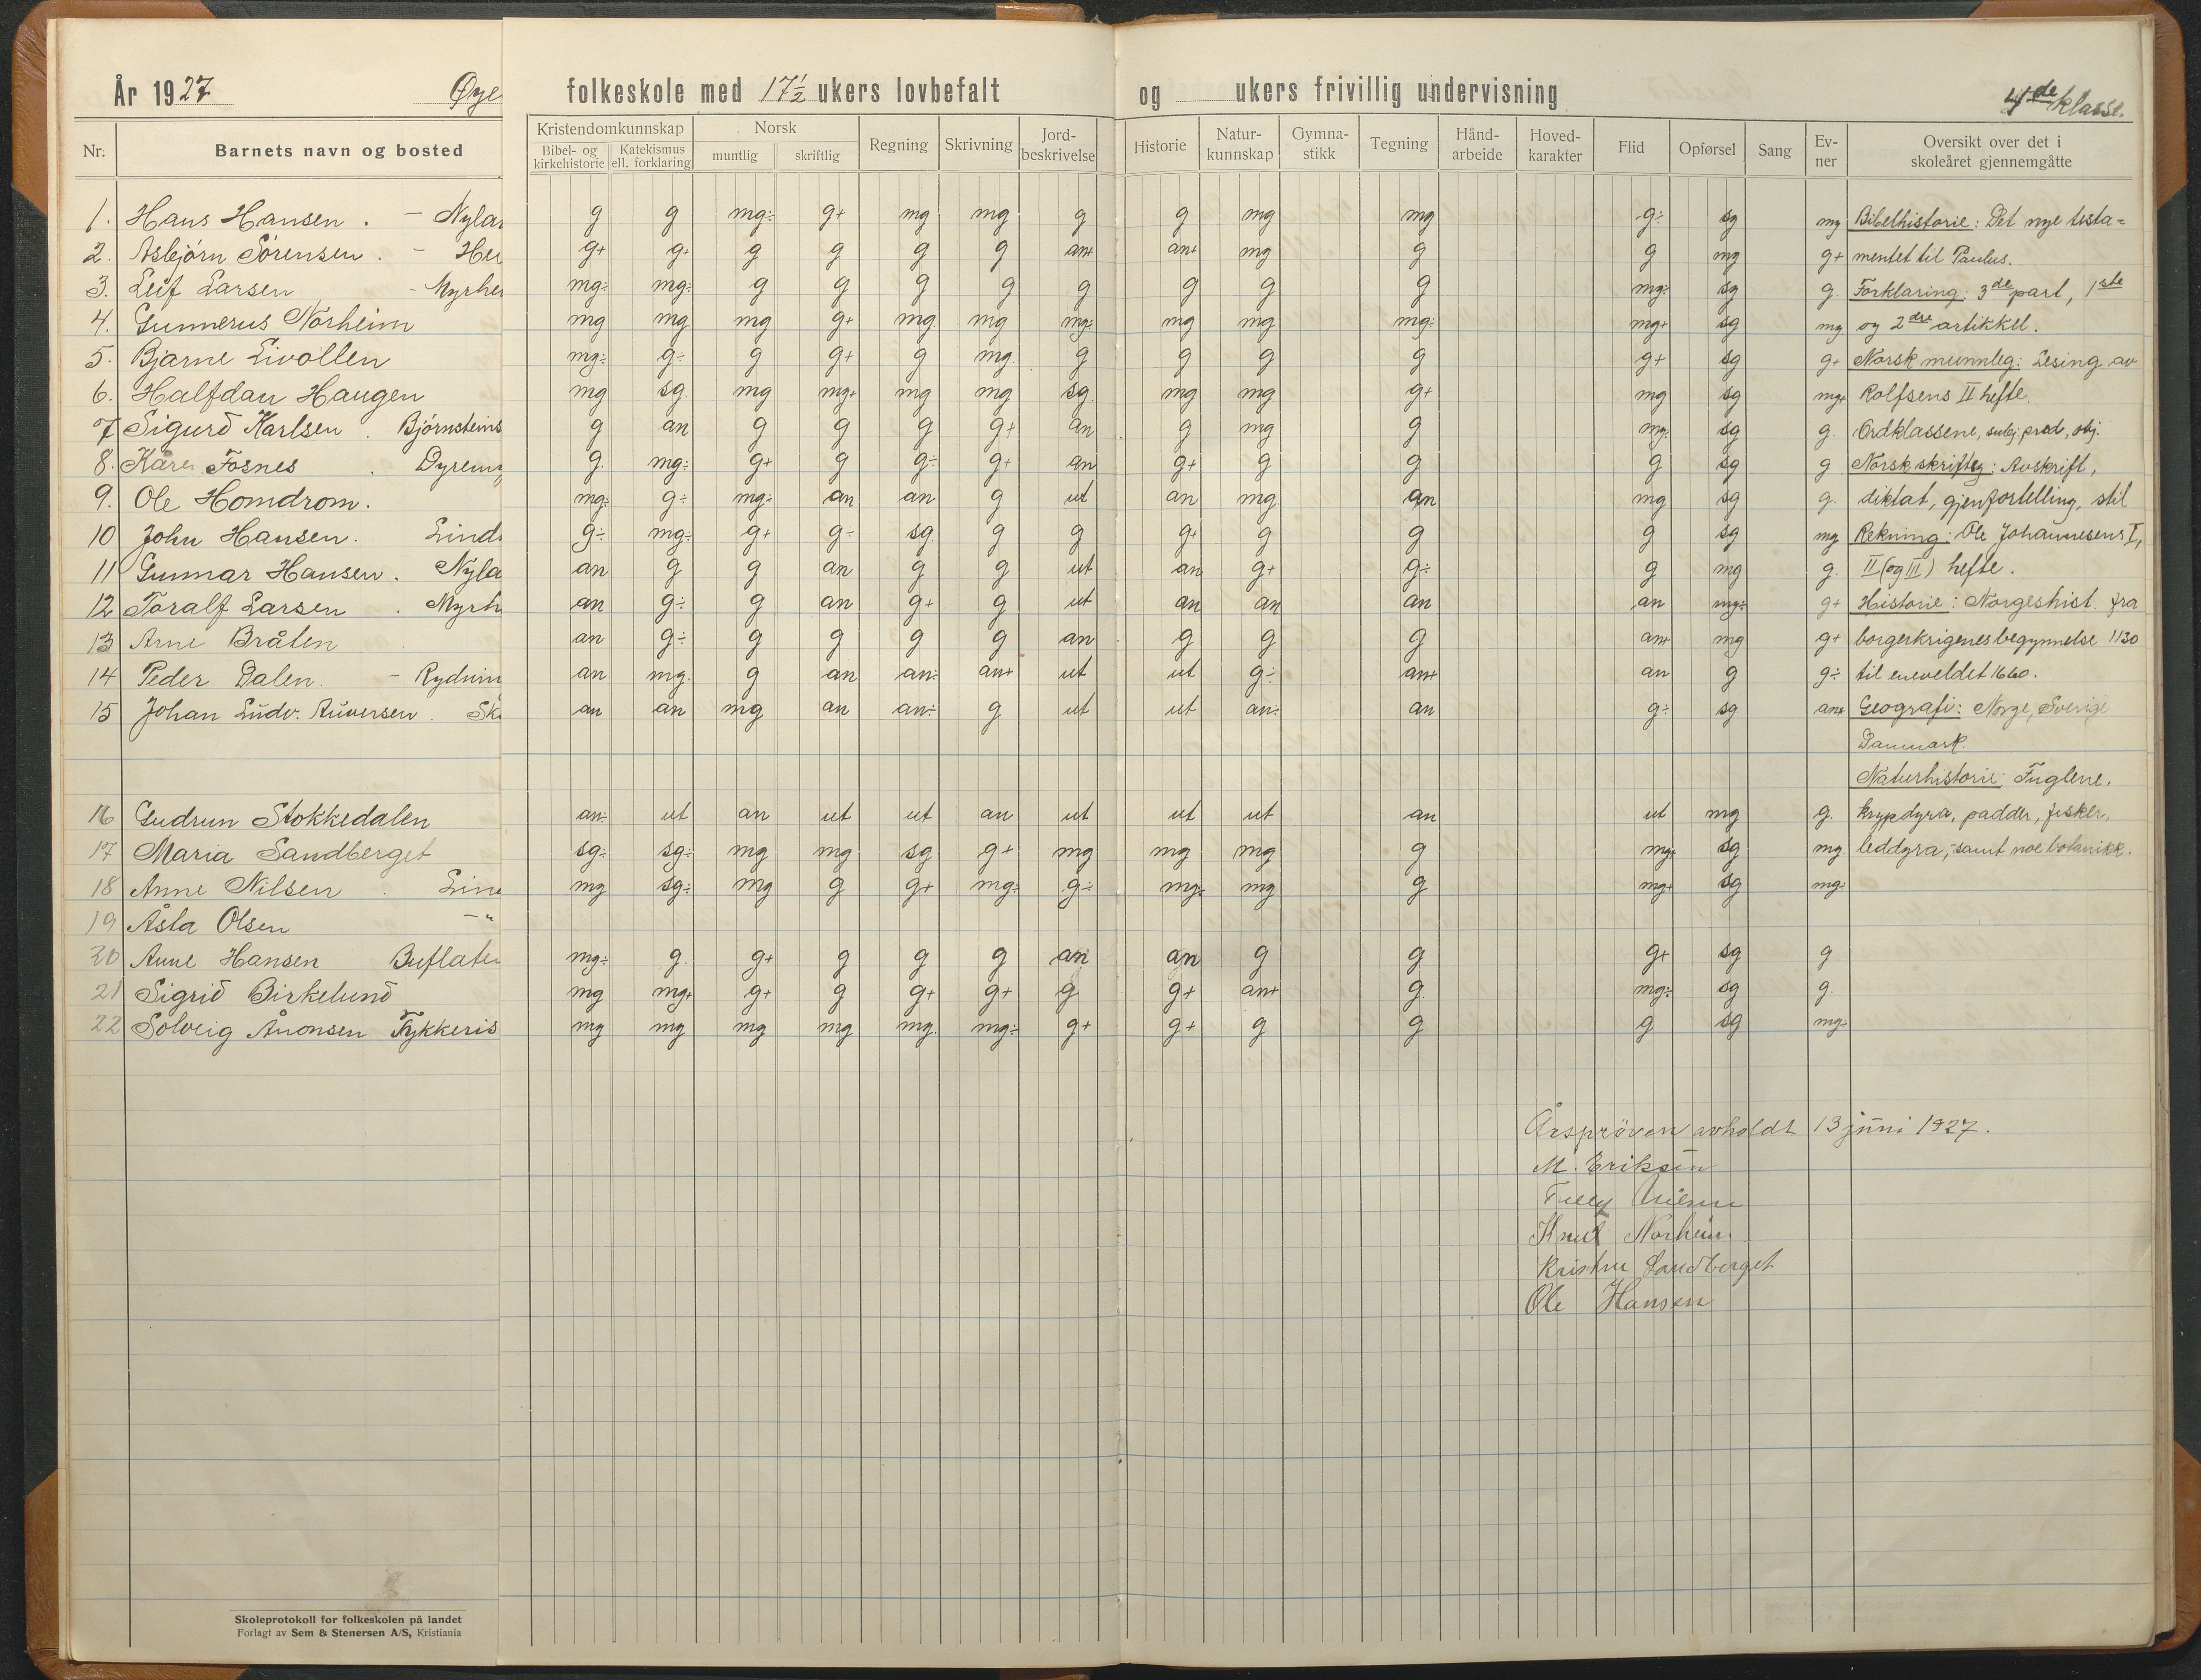 År 1927 Øye folkeskole med 17½ ukers lovbefalt og ukers frivillig undervisning 4de klasse.
Nr. Barnets navn og bosted Kristendomkunnskap Bibel- og kirkehistorie Katekismus ell. forklaring Norsk muntlig skriftlig Regning Skrivning Jord-beskrivelse Historie Natur-kunnskap Gymna-stikk Tegning Hånd-arbeide Hoved-karakter Flid Opførsel Sang Ev-ner Oversikt over det i skoleåret gjennemgåtte
1. Hans Hansen. - Nylan g g mg÷ g+ mg mg g g mg mg g÷ sg mg Bibelhistorie: Det nye testa=
2. Asbjørn Sørensen. - Hei g+ g+ g g g g an+ an+ mg g g mg g+ mentet til Paulus.
3. Leif Larsen - Myrhei mg÷ mg÷ g g g g g g g g mg÷ sg g. Forklaring: 3de part, 1ste
4. Gunnerus Norheim mg mg mg g+ mg. mg mg÷ mg mg mg÷ mg+ sg mg og 2dre artikkel.
5. Bjarne Livollen mg÷ g÷ g g+ g mg. g g g g g+ sg g+ Norsk munnleg: Lesing av
6. Halfdan Haugen mg sg. mg mg+ mg mg sg mg mg g+ mg sg mg+ Rolfsens II hefte.
7 Sigurd Karlsen. Bjørnsteins g an g g g g+ an g mg g mg÷ sg g. Ordklassene, subj. pred, obj.
8. Kåre Fosnes. Dyreng g. mg÷ g+ g g÷ g+ an g+ g g g sg g Norsk skriftleg: Avskrift,
9. Ole Homdrom. mg÷ g÷ mg÷ an an g ut an mg an mg sg g. diktat, gjenfortelling, stil
10 John Hansen. Linds g÷ mg÷ g+ g÷ sg g g g+ g g g sg mg Rekning: Ole Johannesens I,
11 Gunnar Hansen. Nyla an g g an g g ut an g+ g÷ g mg g. II (og III) hefte.
12 Toralf Larsen. Myrh an g÷ g an g+ g ut an an an an mg÷ g+ Historie: Norgeshist. fra
13 Arne Bråten an g÷ g g g g an g g g an+ mg g+ borgerkrigenes begynnelse 1130
14 Peder Dalen. - Rydning an mg. g an an÷ an+ ut ut g÷ an+ an g g÷ til eneveldet 1660.
15 Johan Ludv. Auversen. Ske an an mg an an÷ g ut ut an÷ an g÷ sg an+ Geografi: Norge, Sverige
Danmark.
Naturhistorie: Fuglene,
16 Gudrun Stokkedalen an÷ ut an ut ut an ut ut ut an ut mg g. krypdyra, padder, fisker,
17 Maria Sandberget sg÷ sg÷ mg mg sg g+ mg mg mg g mg+ sg mg. leddyra, samt noe botanikk.
18 Anne Nilsen. Line mg sg÷ mg g g+ mg÷ g÷ mg÷ mg g mg+ sg mg÷
19 Åsta Olsen -"
20 Anne Hansen Buflaten mg÷ g. g+ g g g an an g g g+ sg g
21 Sigrid Birkelund mg mg+ g+ g g+ g+ g g+ an+ g. mg÷ sg g.
22 Solveig Ånonsen Fykkeris mg mg mg mg mg. mg÷ g+ g+ g g g sg mg÷
Årsprøven avholdt 13 juni 1927.
M. Eriksen
Nilsen
Knut Norheim.
Kristen Sandberget
Ole Hansen
Skoleprotokoll for folkeskolen på landet
Forlagt av Sem & Stenersen A/S, Kristiania